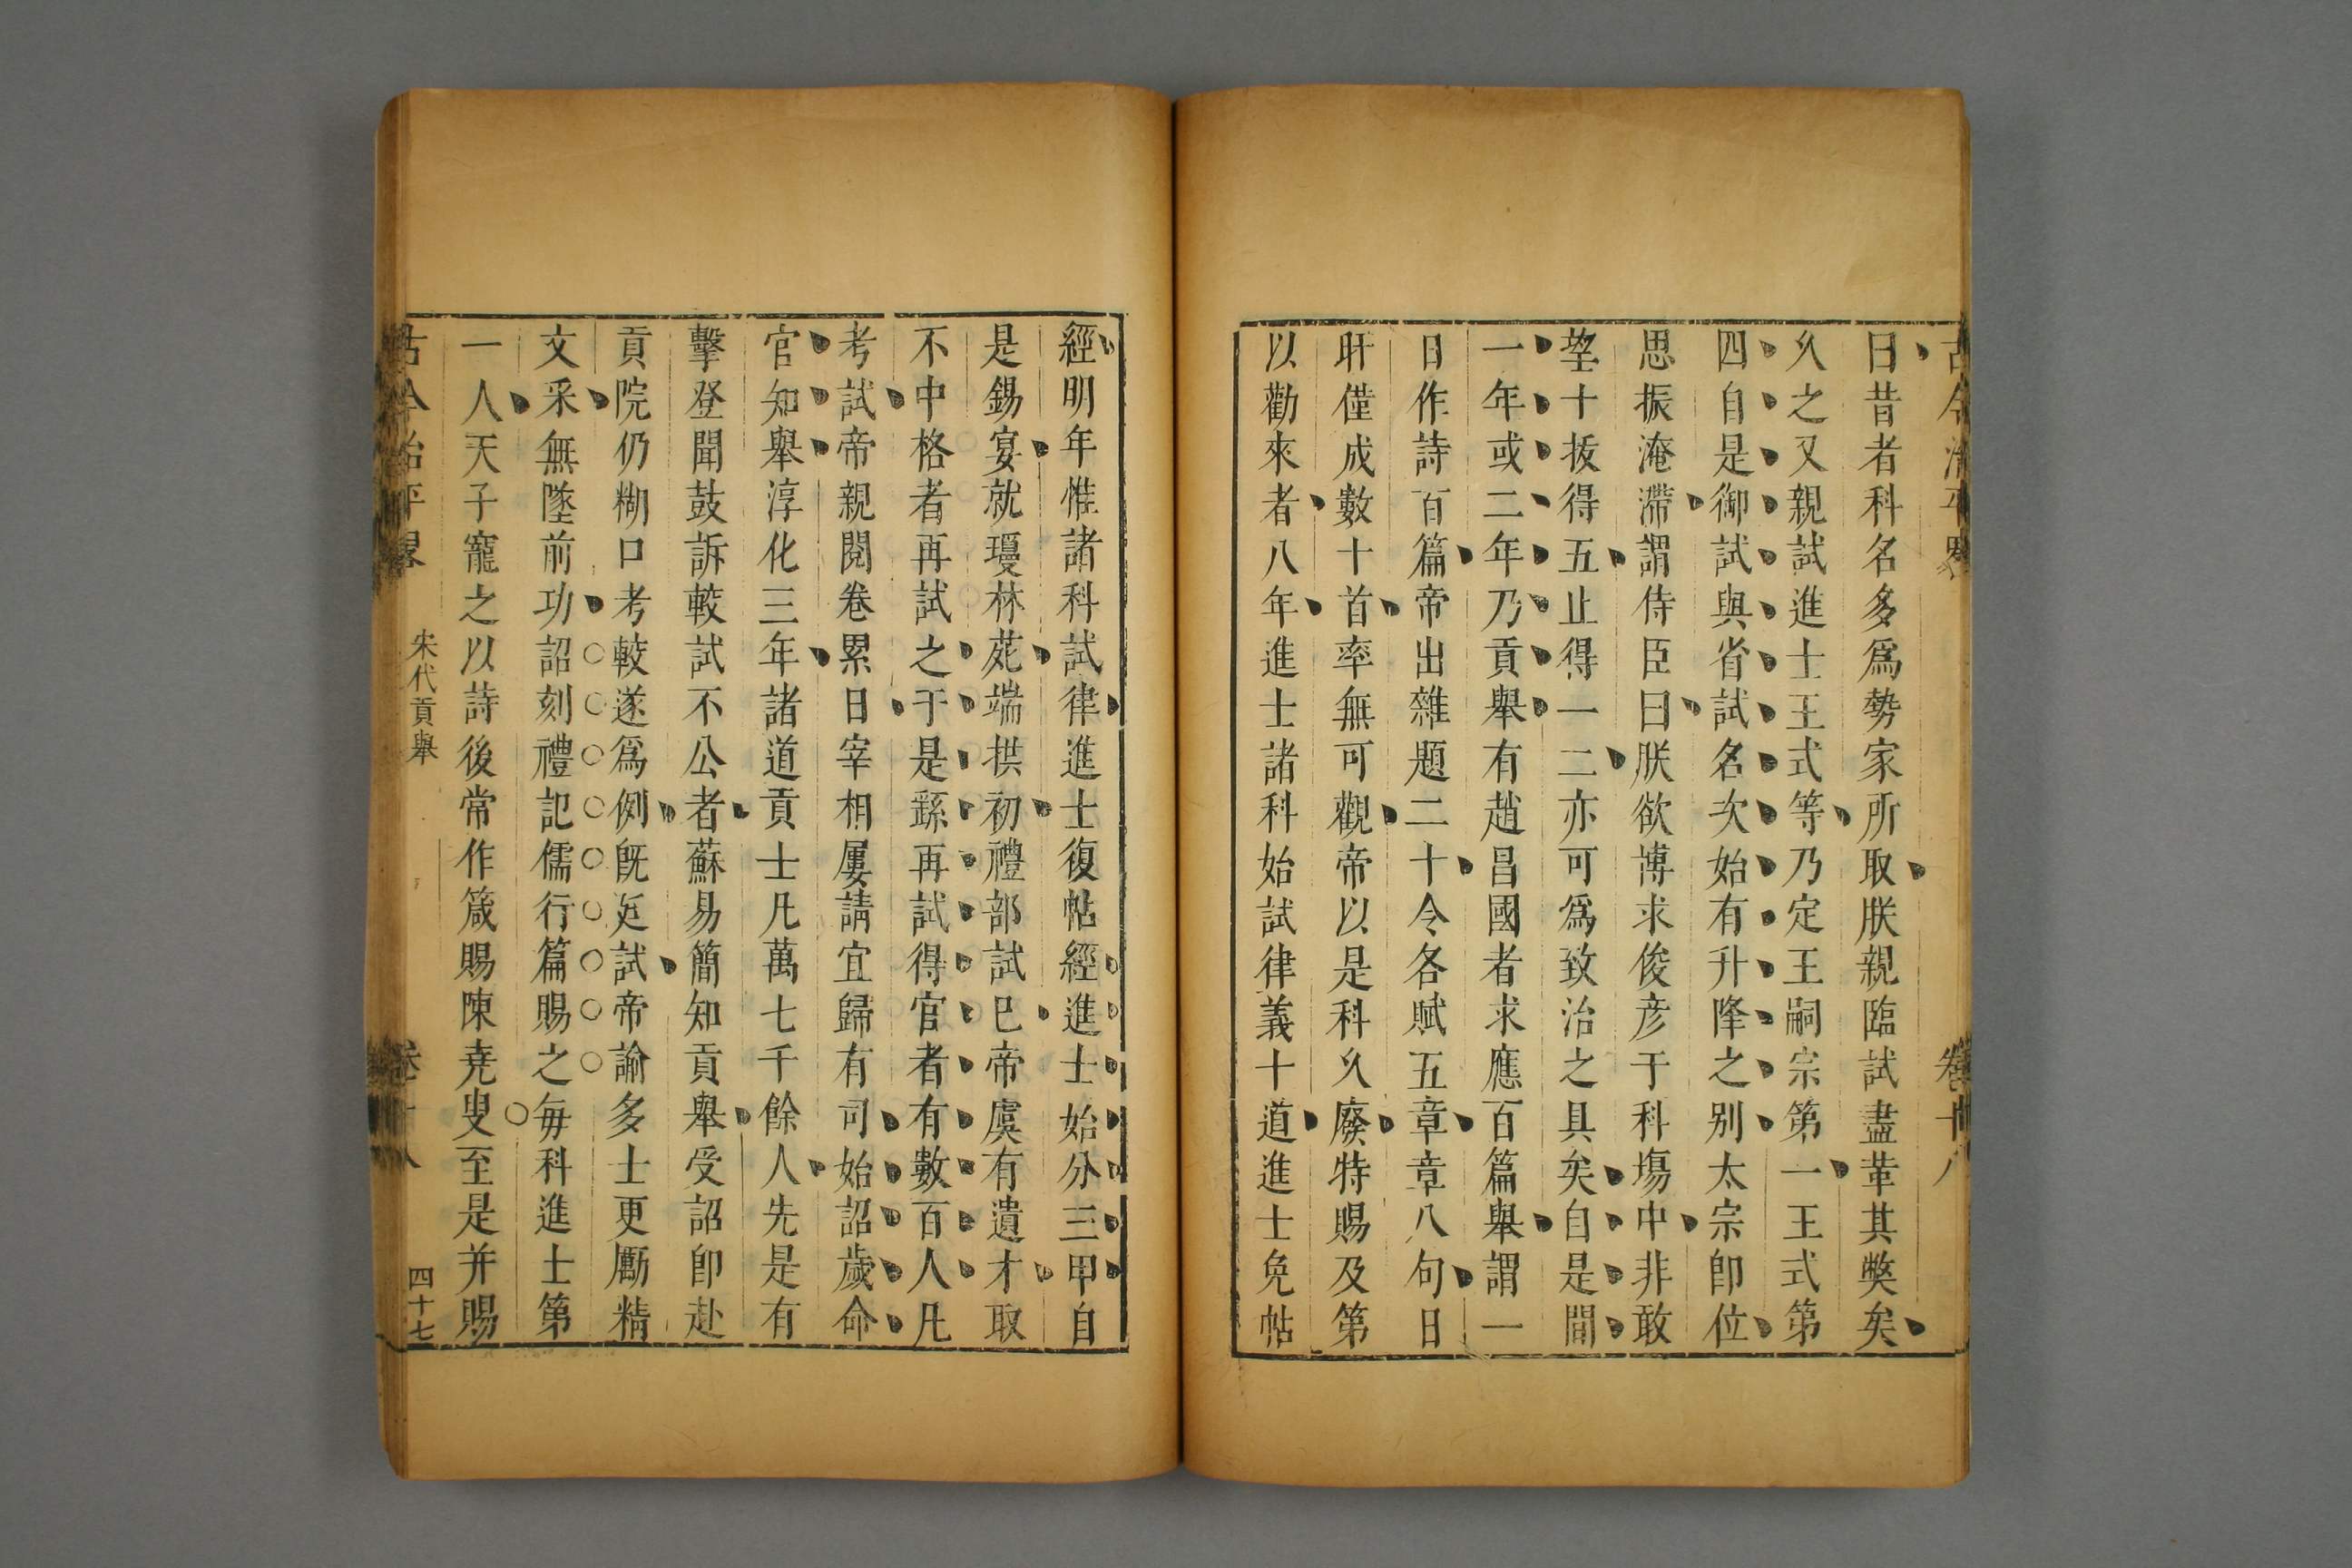 古今治平畧　卷十八
曰昔者科名多爲勢家所取朕親臨試盡革其獘矣
乆之又親試進士王式等乃定王嗣宗第一王式第
四自是御試與省試名次始有升降之别太宗卽位
思振淹滯謂侍臣曰朕欲博求俊彦于科塲中非敢
望十拔得五止得一二亦可爲致治之具矣自是間
一年或二年乃貢舉有趙昌國者求應百篇舉謂一
日作詩百篇帝出雜題二十令各賦五章章八句日
旰僅成數十首率無可觀帝以是科乆廢特賜及第
以勸來者八年進士諸科始試律義十道進士免帖
經明年惟諸科試律進士復帖經進士始分三甲自
是錫宴就瓊林苑端拱初禮部試巳帝虞有遺才取
不中格者再試之于是繇再試得官者有數百人凡
考試帝親閱卷累日宰相屢請宜歸有司始詔歲命
官知舉淳化三年諸道貢士凡萬七千餘人先是有
擊登聞鼓訴較試不公者蘇易簡知貢舉受詔卽赴
貢院仍糊口考較遂爲例旣廷試帝諭多士更勵精
文采無墜前功詔刻禮記儒行篇賜之每科進士第
一人天子寵之以詩後常作箴賜陳堯叟至是并賜
古今治平畧　宋代貢舉　卷十八　四十七